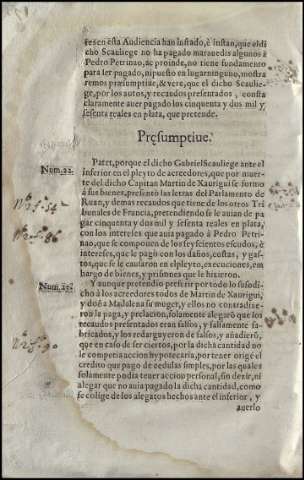 res en esta Audiencia han instado, è instan, que el di
cho Scauliege no ha pagado marauedis algunos à
Pedro Petrinao, ac proinde, no tiene fundamento
para ser pagado, ni puesto en lugar ninguno, mostra
remos præsumptiuè, & verè, que el dicho Scaulie-
ge, por los autos, y recaudos presentados, consta
claramente auer pagado los cinquenta y dos mil y
sesenta reales en plata, que pretende.
Præsumptiue.
Num. 22.
Patet, porque el dicho Gabriel Scauliege ante el
inferior en el pleyto de acreedores, que por muer-
te del dicho Capitan Martin de Xaurigui se formò
à sus bienes, presentò las letras del Parlamento de
Ruan, y demas recaudos que tiene de los otros Tri
bunales de Francia, pretendiendo se le auian de pa-
gar cinquenta y dos mil y sesenta reales en plata,
con los intereses que auia pagado à Pedro Petri-
nao, que se componen de los seyscientos escudos, è
intereses, que le pagò con los daños, costas, y gas-
tos, que se le causaron en el pleyto, execuciones, em-
bargo de bienes, y prisiones que le hizieron.
Y aunque pretendio preferir por todo lo susodi-
cho à los acreedores todos de Martin de Xaurigui,
y doña Madalena su muger, y ellos no contradixe-
ron la paga, y prelacion, solamente alegarõ que los
recaudos presentados eran falsos, y falsamente fa-
bricados, y los redarguyeron de falsos, y añadierõ,
que en caso de ser ciertos, por la dicha cantidad no
le competia accion hypotecaria, por tener origẽ el
credito que pago de cedulas simples, por las quales
solamente podia tener accion personal, sin dezir, ni
alegar que no auia pagado la dicha cantidad, como
se colige de los alegatos hechos ante el inferior, y
auerlo